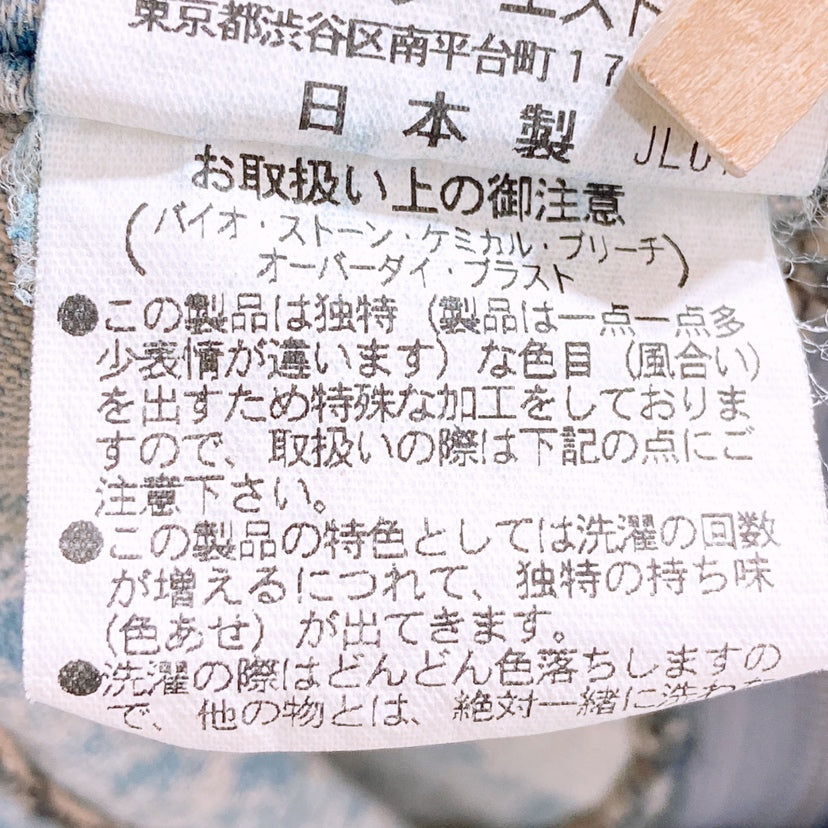 エスト
東京都渋谷区南平台町17
日本製
JL0
お取扱い上の御注意
(バイオ・ストーン・ケミカル・ブリーチ
オーバーダイ・ブラスト)
●この製品は独特（製品は一点一点多
少表情が違います）な色目（風合い）
を出すため特殊な加工をしておりま
すので、取扱いの際は下記の点にご
注意下さい。
●この製品の特色としては洗濯の回数
が増えるにつれて、独特の持ち味
(色あせ）が出てきます。
●洗濯の際はどんどん色落ちしますの
で、他の物とは、絶対一緒に洗わな